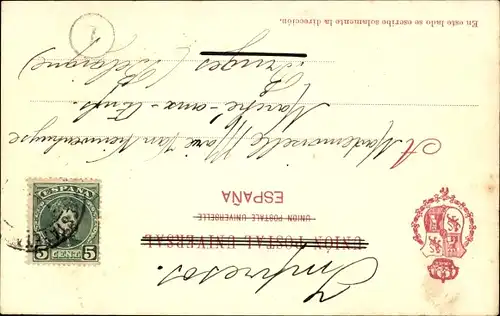 Impresos.
UNION POSTAL UNIVERSAL
UNION POSTALE UNIVERSELLE
ESPAÑA
A Mademoiselle Marie Van
Marché-aux-
Bruges (Belgique)
En este lado se escribe solamente la dirección.
1
ESPAÑA
5 CENT. 5